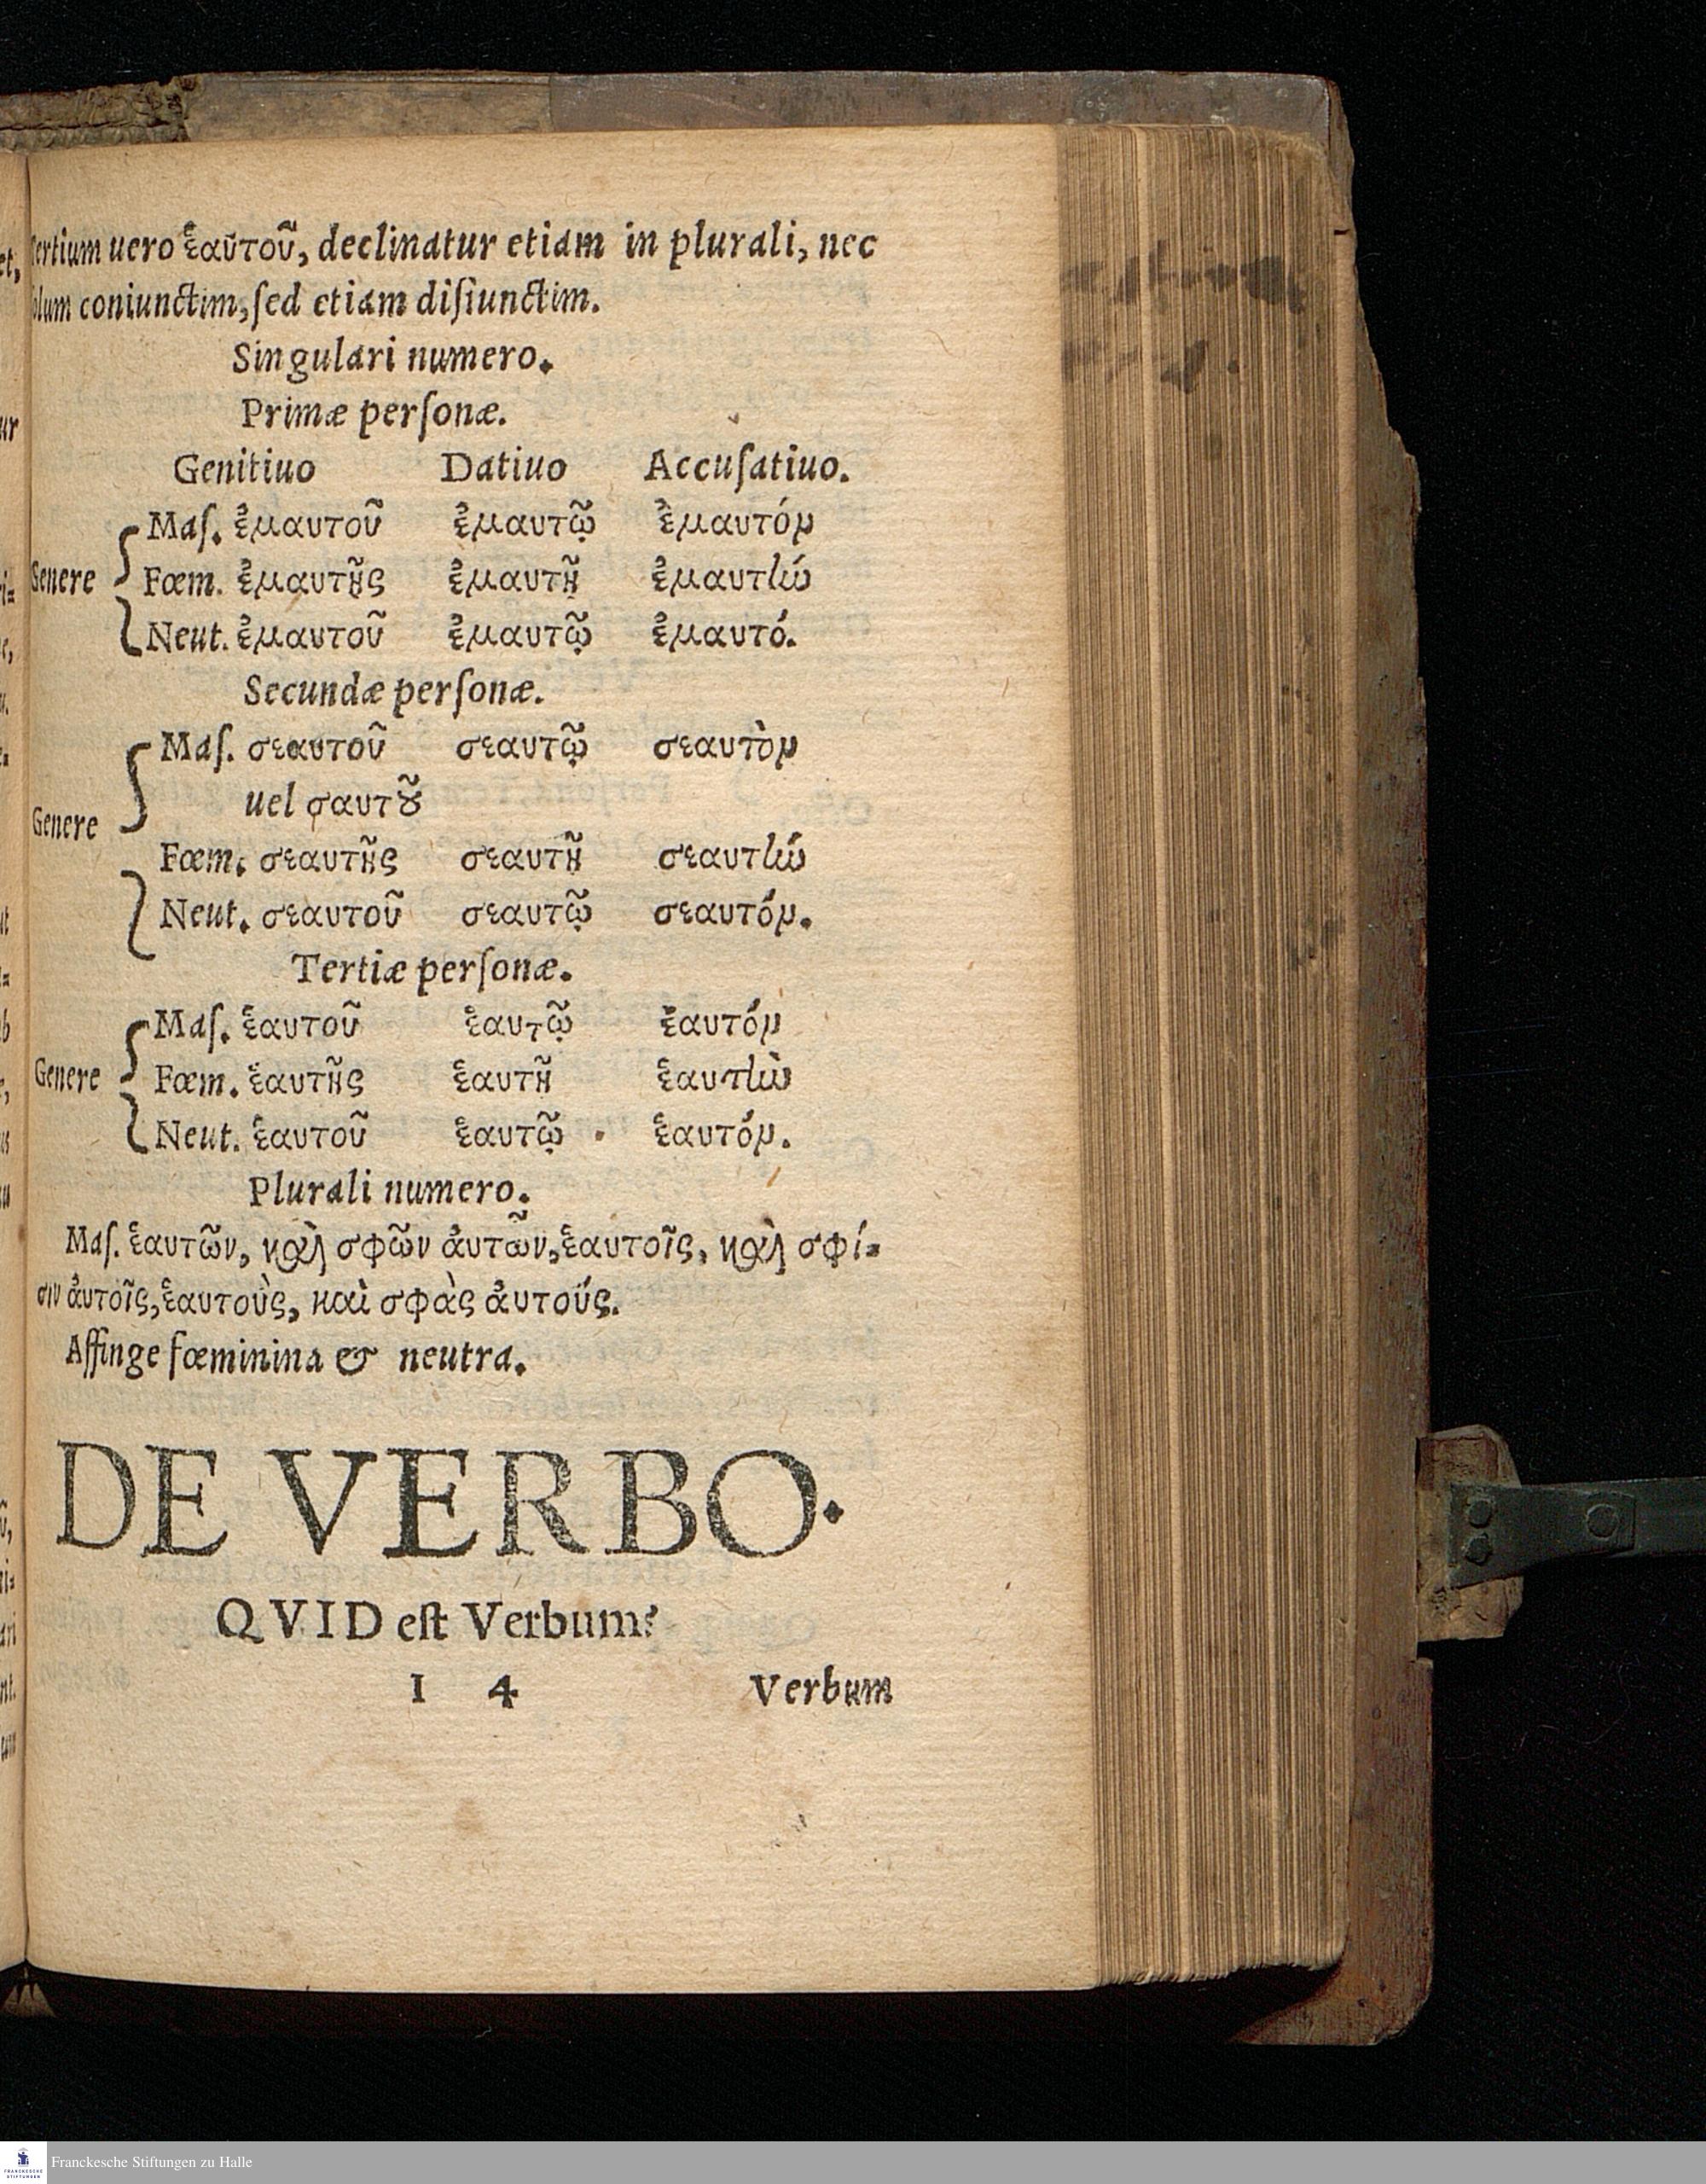 Tertium uero ἑαυ̃τοῦ, declinatur etiam in plurali, nec
solum coniunctim, sed etiam disiunctim.
Singulari numero.
Primæ personæ.
Genitiuo Datiuo Accusatiuo.
Mas. ἐμαυτοῦ ἐμαυτῷ ἐμαυτόν
Genere Fœm. ἐμαυτῆς ἐμαυτῆ ἐμαυτήν
Neut. ἐμαυτοῦ ἐμαυτῷ ἐμαυτό.
Secundæ personæ.
Mas. σεαυτοῦ σεαυτῷ σεαυτὸν
uel σαυτοῦ
Genere
Fœm. σεαυτῆς σεαυτῆ σεαυτήν
Neut. σεαυτοῦ σεαυτῷ σεαυτόν.
Tertiæ personæ.
Mas. ἑαυτοῦ ἑαυτῷ ἑαυτόν
Genere Fœm. ἑαυτῆς ἑαυτῆ ἑαυτὴν
Neut. ἑαυτοῦ ἑαυτῷ ἑαυτόν.
Plurali numero.
Mas. ἑαυτῶν, καὶ σφῶν ἀυτῶν, ἑαυτοῖς, καὶ σφί=
σιν ἀυτοῖς, ἑαυτοὺς, καὶ σφὰς ἀυτούς.
Affinge fœminina & neutra.
DE VERBO.
QVID est Verbum?
I 4 Verbum
Franckesche Stiftungen zu Halle
FRANCKESCHE
STIFTUNGEN